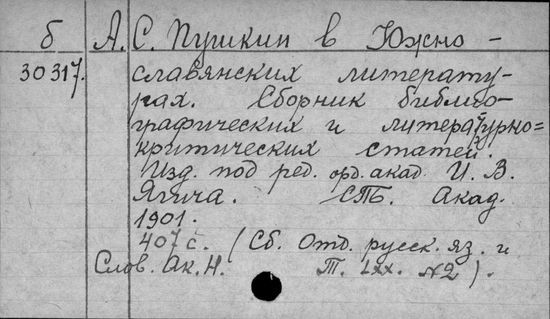 б А. С. Пушкин в Южно-
30317. славянских литерату-
рах. Сборник библио-
графических и литературно-
критических статей.
Изд. под ред. орд. акад. И. В.
Ягича. СПб. Акад.
1901.
407 с. (Сб. Отд. русск. яз. и
Слов. Ак. Н. Т. LXX. №2).